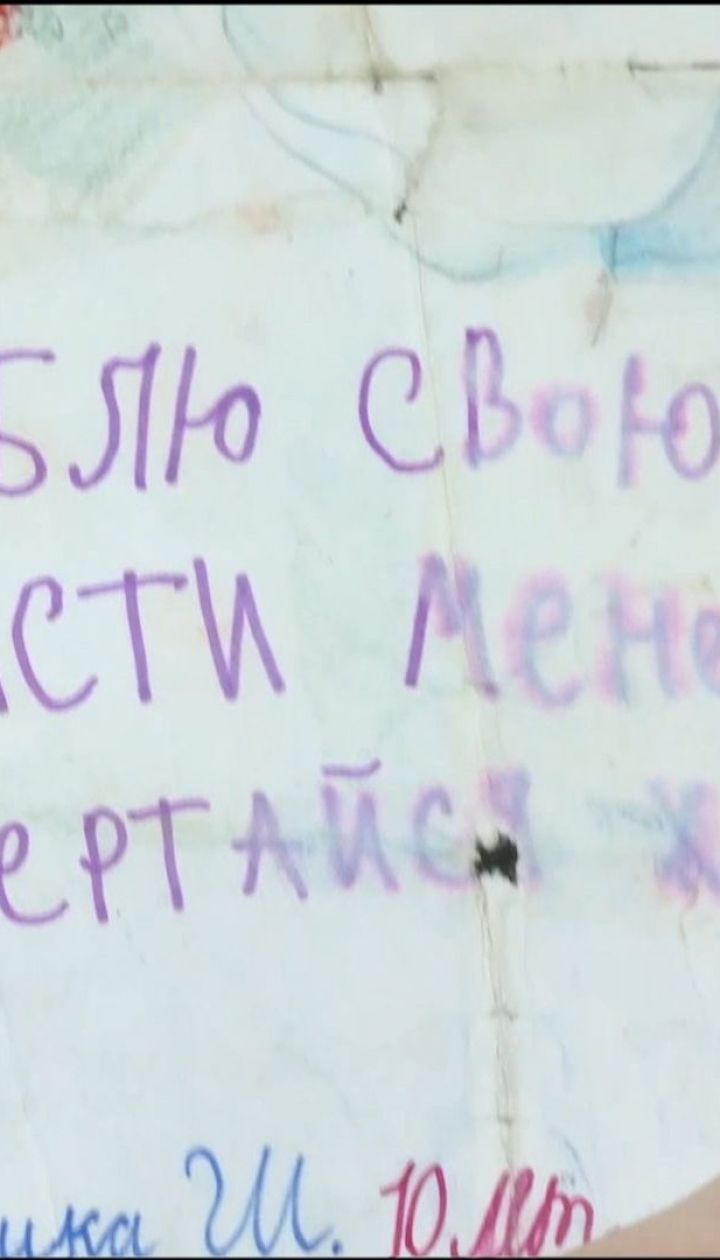 БЛЮ СВОЮ
СТИ МЕНЕ
ЕРТАЙСЯ Ж
ика Ш. 10 літ